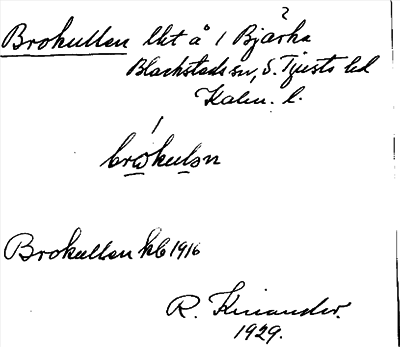 ?
Brokullen lht å 1 Bjärka
Blackstads sn, S. Tjusts hd
Kalm. l.
brωkulən
Brokullen kb 1916
R. Kinander.
1929.